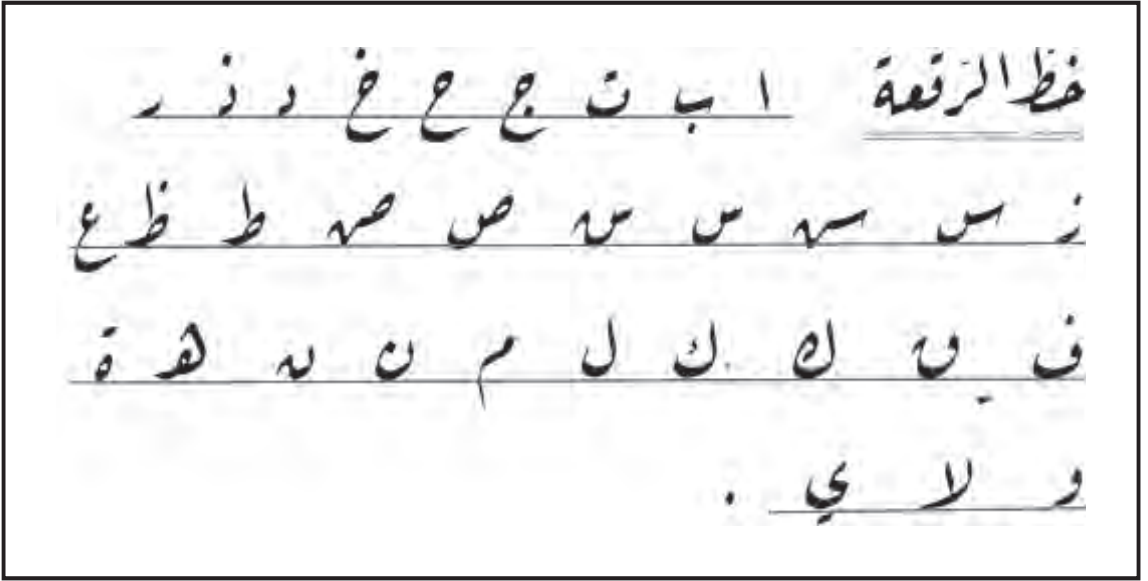 خط الرقعة ا ب ت ج ح خ د ذ ر
ز س س س س ص ص ط ظ ع
ف ق ك ك ل م ن ن ه ة
و لا ي .